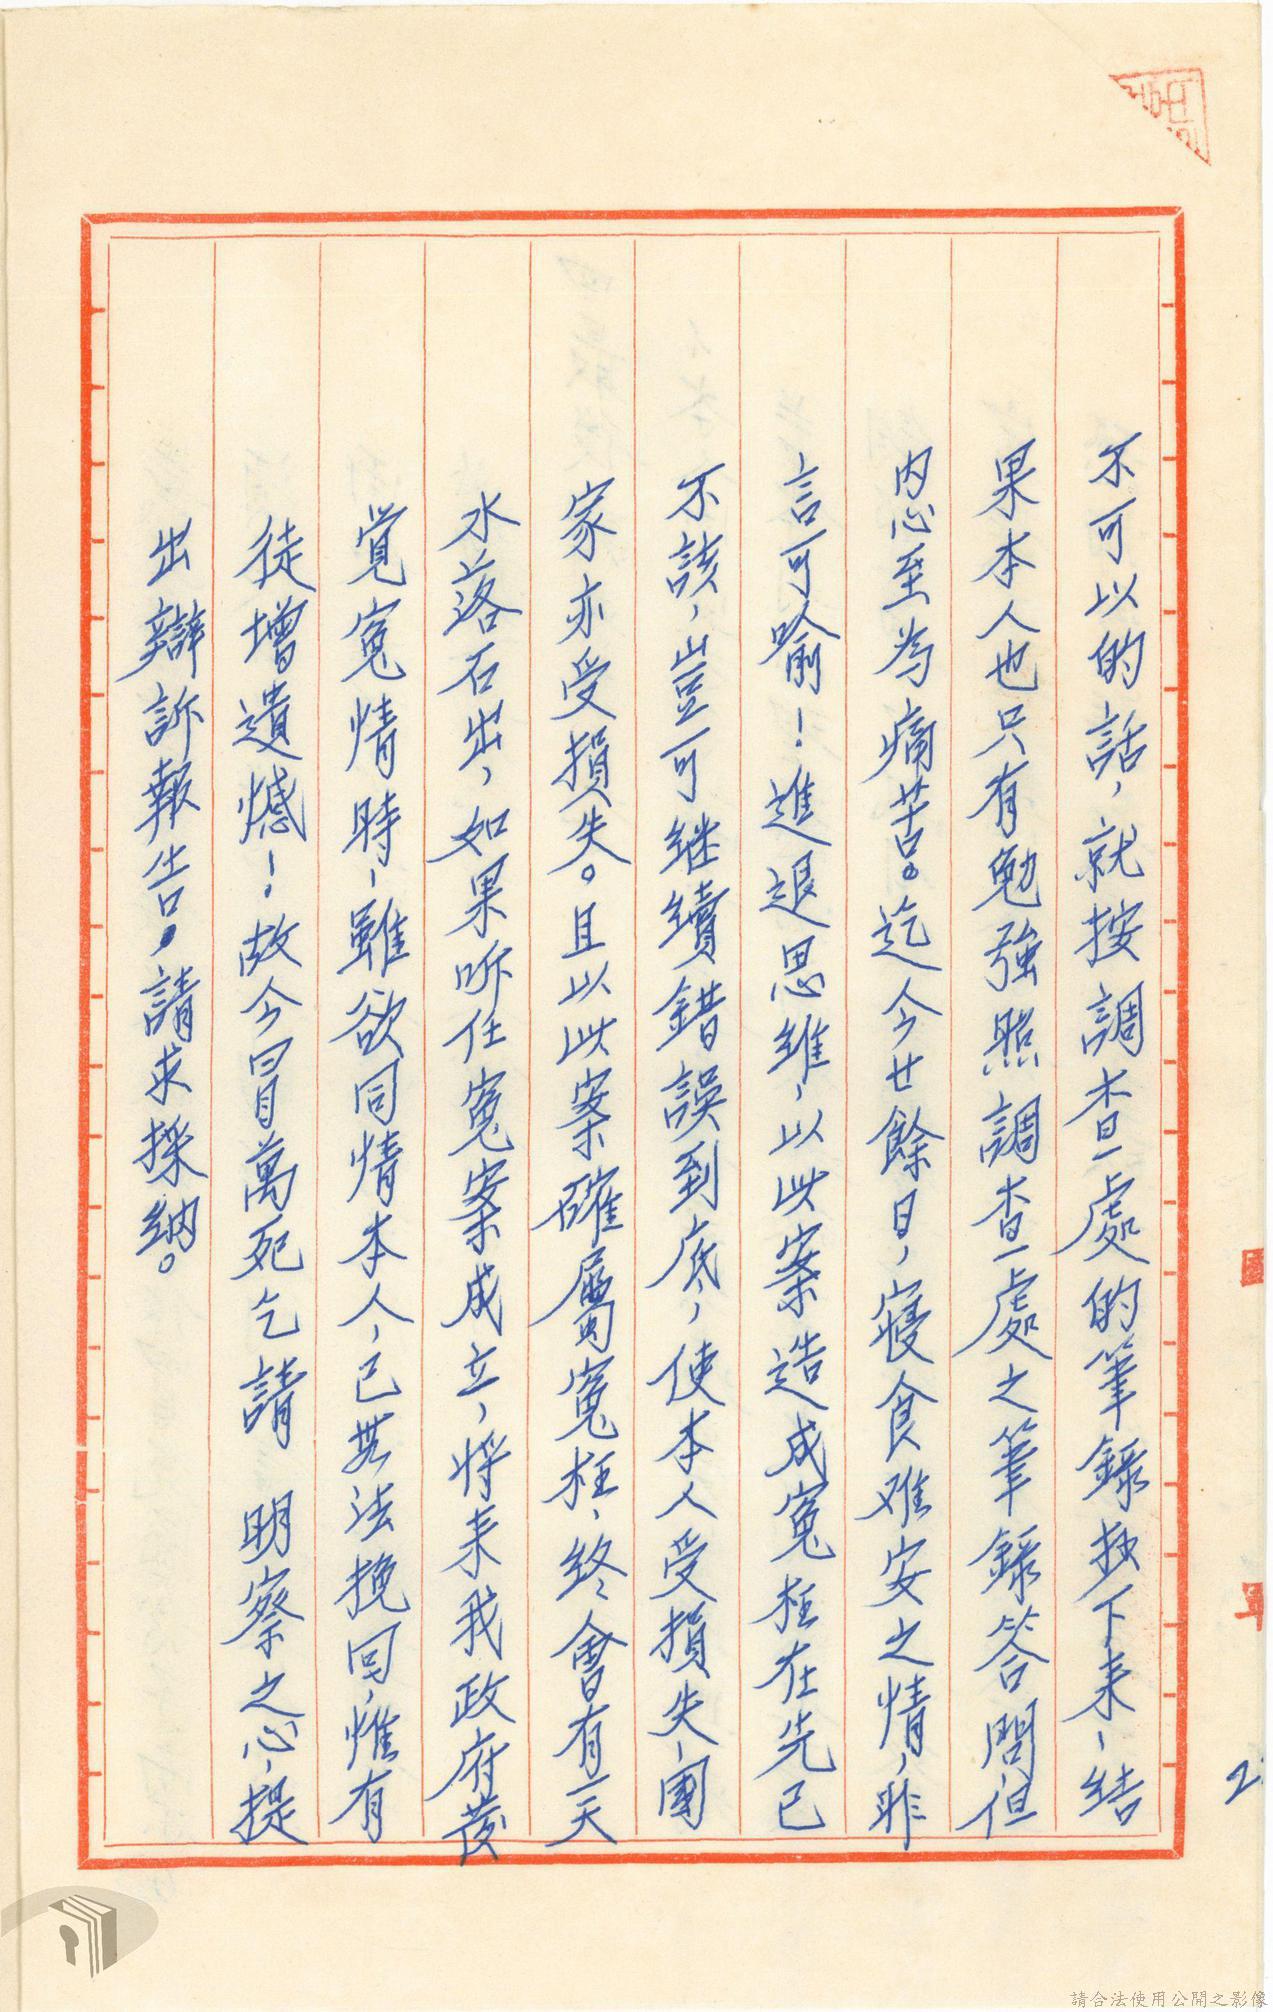 不可以的話，就按調查處的筆錄抄下來，結
果本人也只有勉強照調查處之筆錄答問，但
內心至為痛苦。迄今廿餘日，寢食难安之情，非
言可喻！進退思維，以此案造成冤枉在先已
不該，豈可继續錯誤到底，使本人受損失，國
家亦受損失。且以此案確屬冤枉，終會有一天
水落石出，如果听任冤案成立，将来我政府发
覚冤情時，雖欲同情本人，已無法挽回，惟有
徒增遺憾！故今冒萬死乞請 明察之心，提
出辯訴報告，請求採納。
2
請合法使用公開之影像